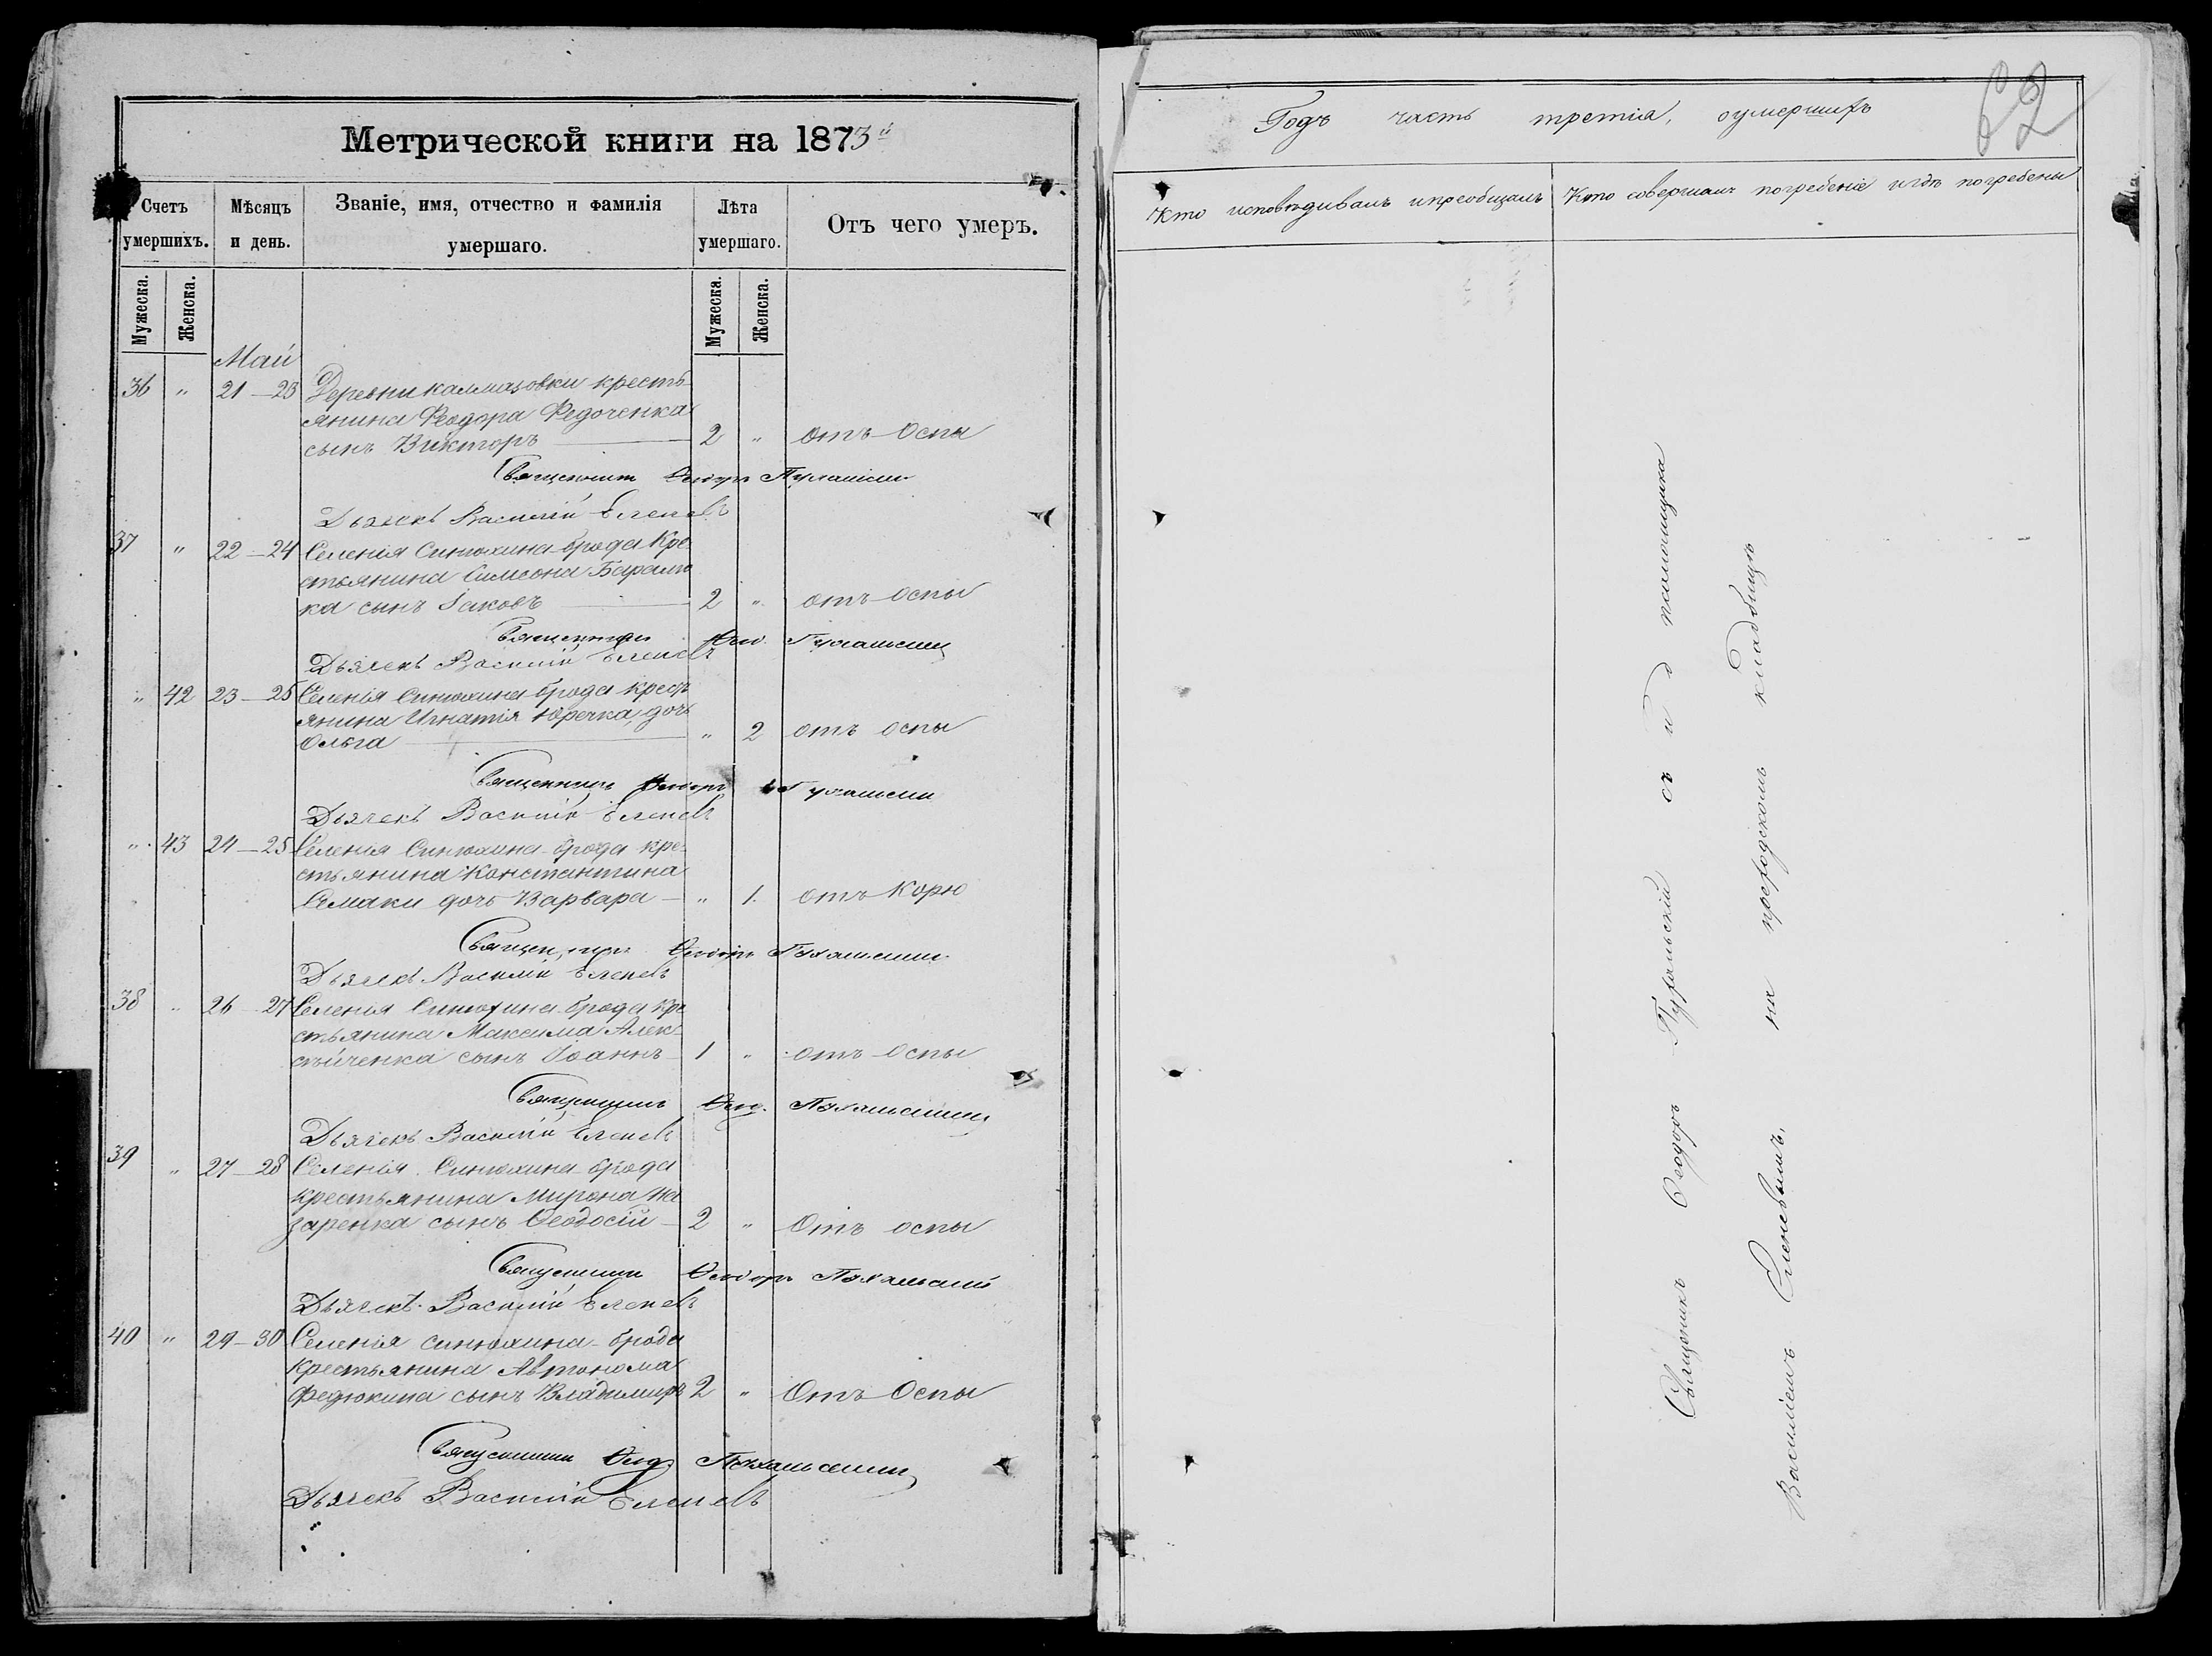 Метрической книги на 1873й
Счетъ умершихъ.
Мѣсяцъ и день.
Званіе, имя, отчество и фамилія умершаго.
Лѣта умершаго.
Отъ чего умеръ.
Мужеска. Женска. Мужеска. Женска.
Май
36 " 21–23 Деревни калмазовки кресть-
янина Феодора Федоченка
сынъ Викторъ 2 " отъ Оспы
Священникъ Ѳеодоръ
Дьячекъ Василій Еленевъ
37 " 22–24 Селенія Синюхина-брода Кре-
стьянина Симеона
ка сынъ Іаковъ 2 " отъ оспы
Священникъ Ѳеод.
Дьячекъ Василій Еленевъ
" 42 23–25 Селенія Синюхина-брода крест
янина Игнатія Юречка дочь
Ольга " 2 отъ оспы
Священникъ Ѳеодоръ
Дьячекъ Василій Еленевъ
" 43 24–25 Селенія Синюхина-брода кре-
стьянина Константина
Семаки дочь Варвара " 1. отъ Корю
Священникъ Ѳеодоръ
Дьячекъ Василій Еленевъ
38 " 26–27 Селенія Синюхина-брода кре
стьянина Максима Алек-
сѣйченка сынъ Іоаннъ 1 " отъ оспы
Священникъ Ѳеод.
Дьячекъ Василій Еленевъ
39 " 27–28 Селенія Синюхина-брода
крестьянина Мирона На
заренка сынъ Ѳеодосій 2 " Отъ оспы
Священникъ Ѳеодоръ
Дьячекъ Василій Еленевъ
40 " 29–30 Селенія синюхина-брода
крестьянина Автонома
Федюкина сынъ Владимиръ 2 " Отъ Оспы
Священникъ Ѳеод.
Дьячекъ Василій Еленевъ
Годъ часть третія, оумершихъ
62
Кто исповѣдивалъ ипреобщалъ
Кто совершалъ погребеніе игдѣ погребены
Священникъ Ѳеодоръ съ и д
Василіемъ Еленевымъ, на приходскомъ кладбищѣ